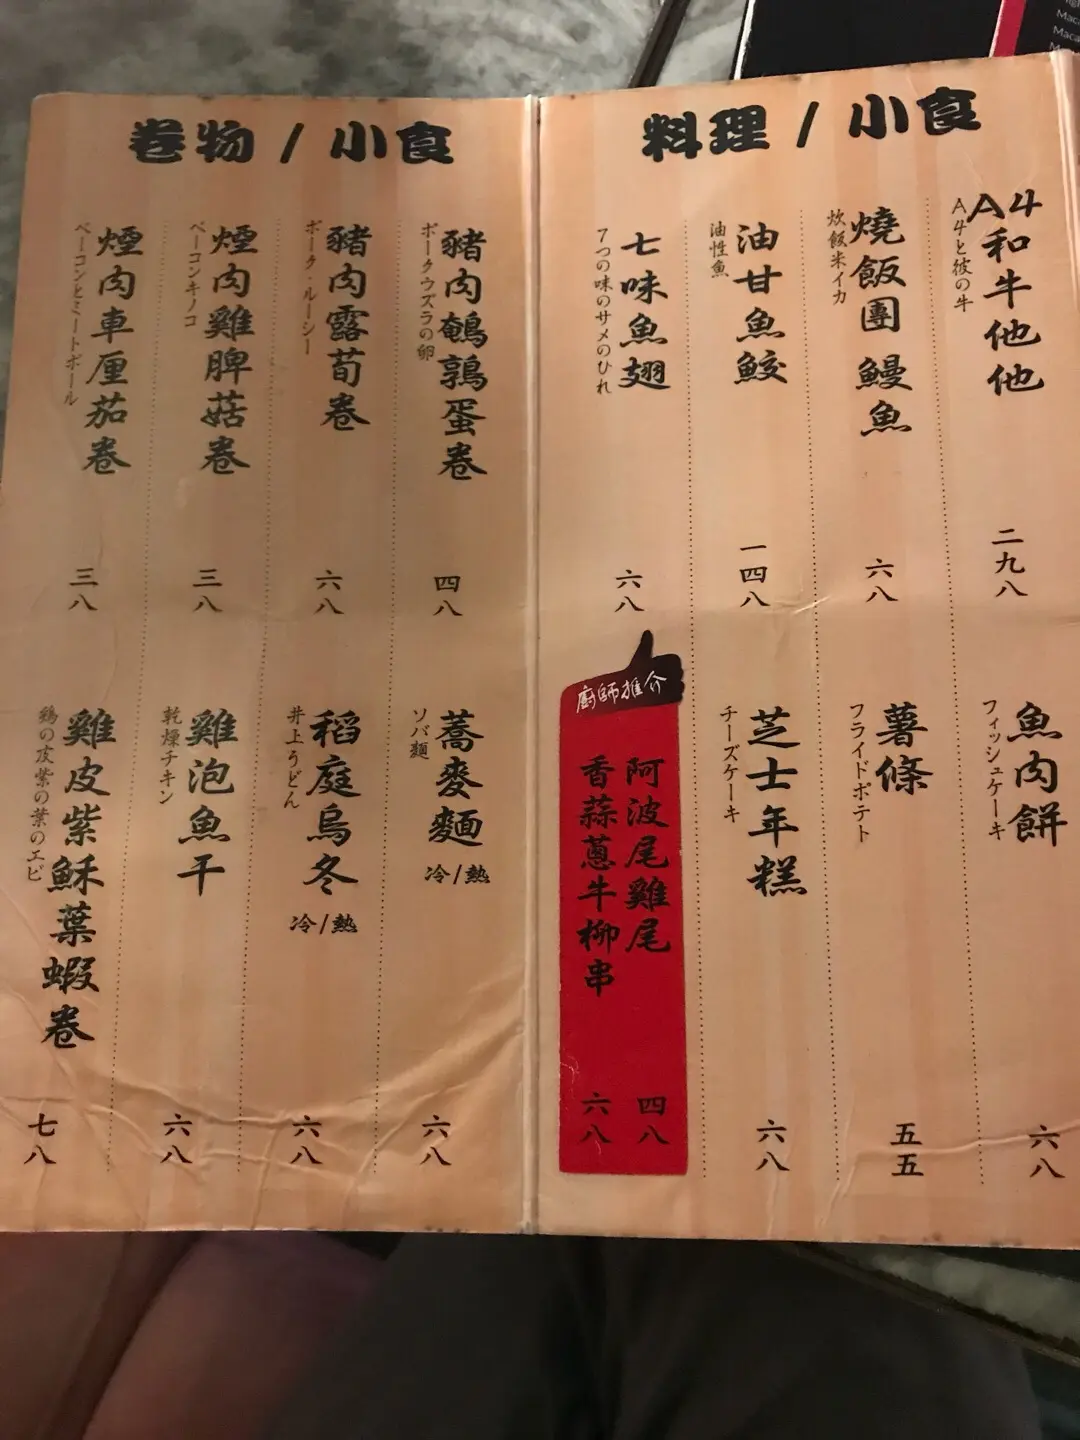 料理 / 小食
A4和牛他他
A4と彼の牛
二九八
燒飯團 鰻魚
炊飯米イカ
六八
油甘魚鮫
油性魚
一四八
七味魚翅
7つの味のサメのひれ
六八
魚肉餅
フィッシュケーキ
六八
薯條
フライドポテト
五五
芝士年糕
チーズケーキ
六八
廚師推介
阿波尾雞尾
四八
香蒜蔥牛柳串
六八
卷物 / 小食
豬肉鵪鶉蛋卷
ポークウズラの卵
四八
豬肉露荀卷
ポーク・ルーシー
六八
煙肉雞脾菇卷
ベーコンキノコ
三八
煙肉車厘茄卷
ベーコンとミートボール
三八
蕎麥麵
冷/熱
ソバ麺
六八
稻庭烏冬
冷/熱
井上うどん
六八
雞泡魚干
乾燥チキン
六八
雞皮紫穌葉蝦卷
鶏の皮紫の葉のエビ
七八